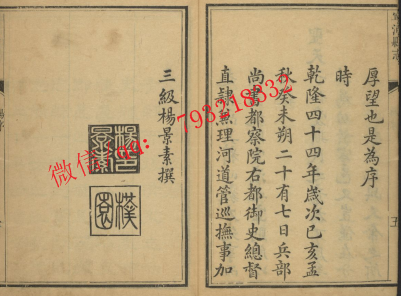 厚望也是為序
時
乾隆四十四年歲次己亥孟
秋癸未朔二十有七日兵部
尚書都察院右都御史總督
直隸兼理河道管巡撫事加
三級楊景素撰
微信qq: 79331833